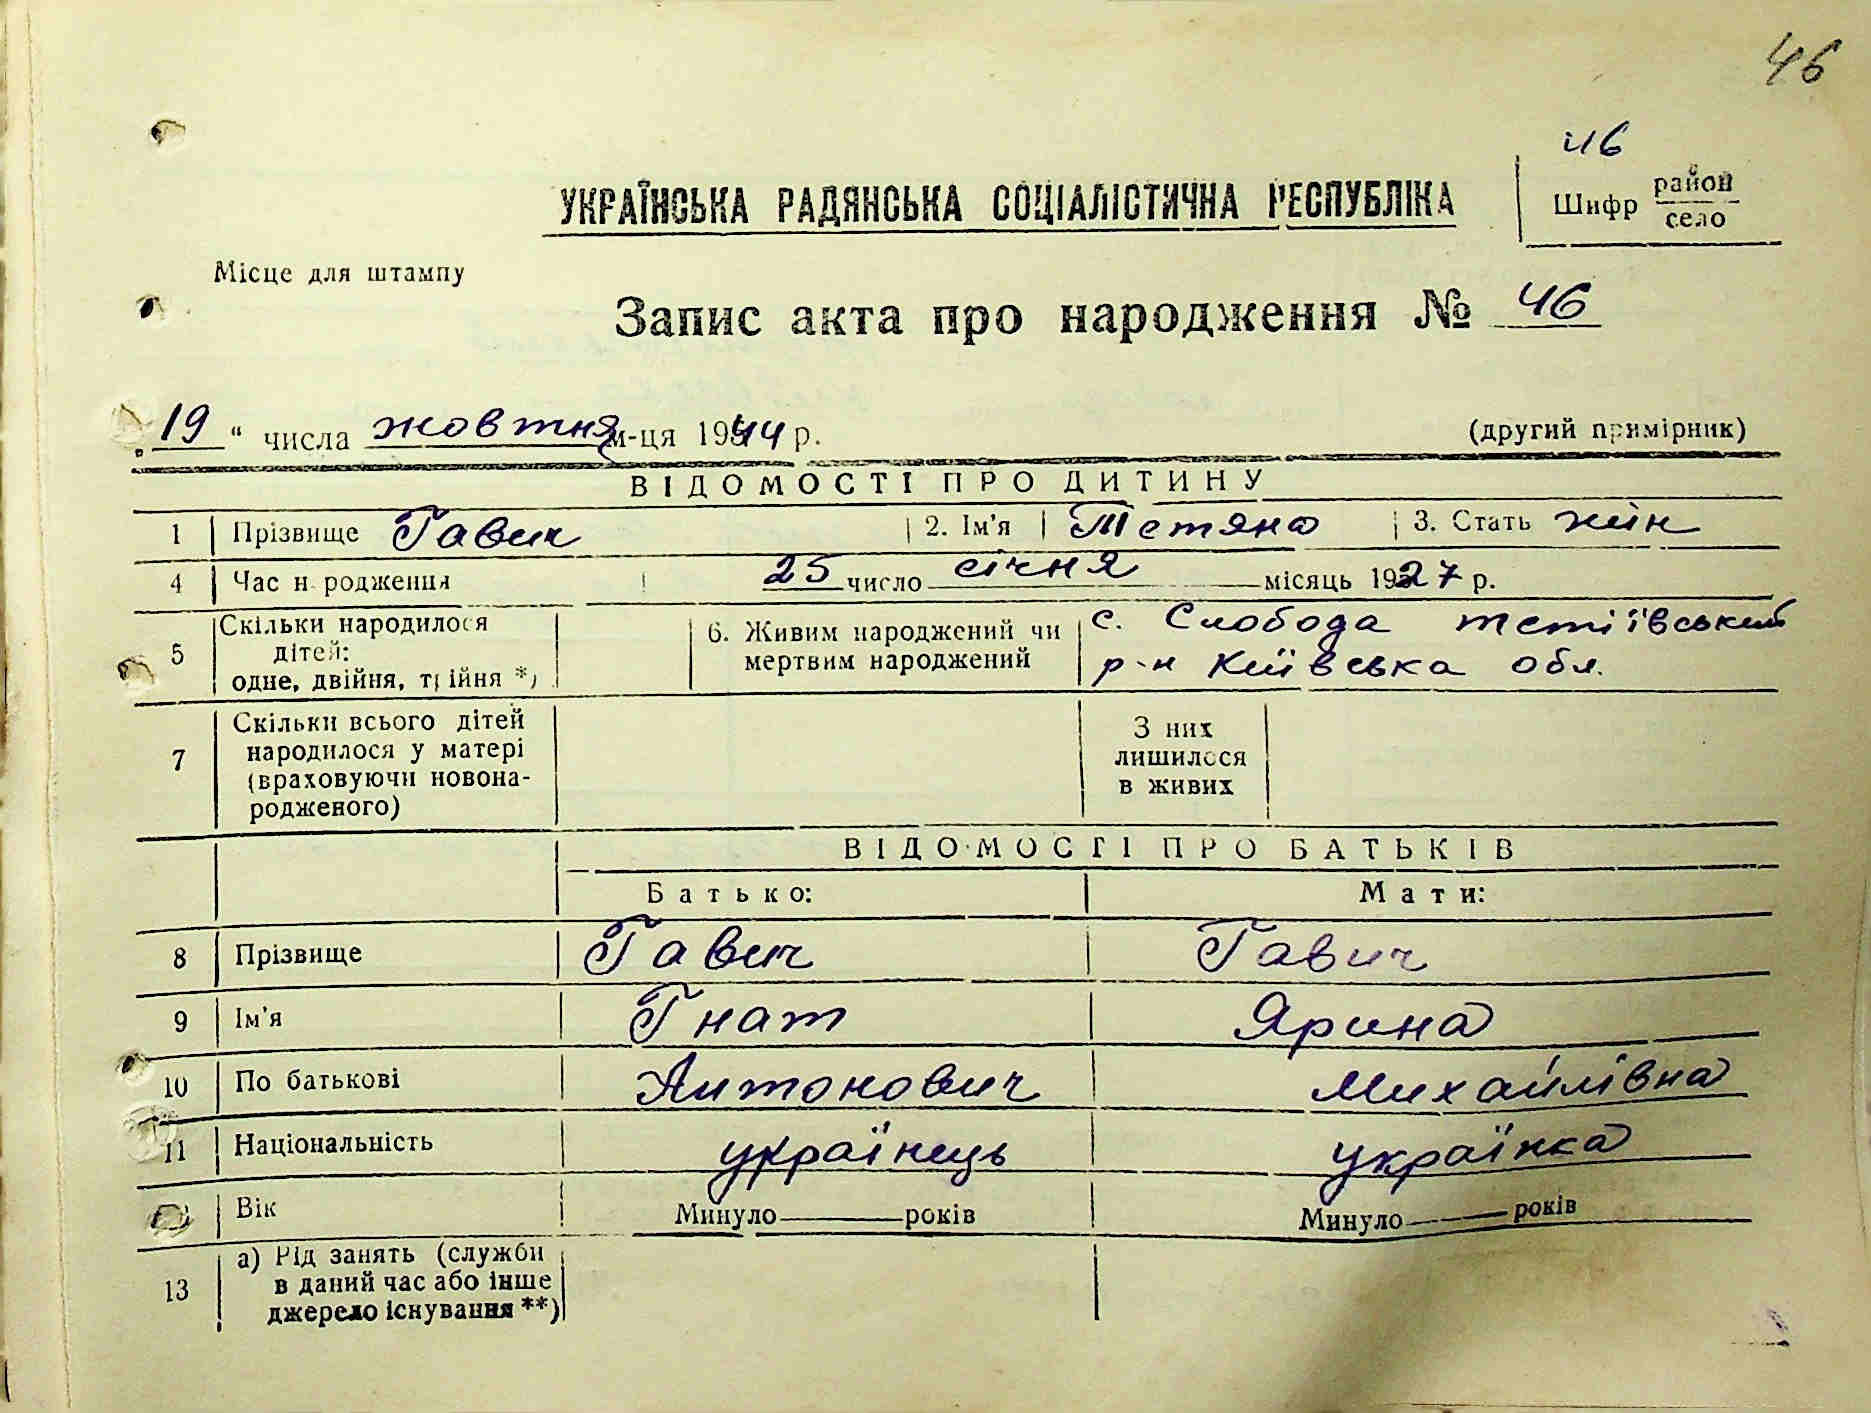 46
46
УКРАЇНСЬКА РАДЯНСЬКА СОЦІАЛІСТИЧНА РЕСПУБЛІКА
Шифр район
село
Місце для штампу
Запис акта про народження № 46
„ 19 “ числа жовтня м-ця 1944 р.
(другий примірник)
ВІДОМОСТІ ПРО ДИТИНУ
1 Прізвище Гавич 2. Ім'я Тетяна 3. Стать жін
4 Час н родження 25 число січня місяць 1927 р.
5 Скільки народилося дітей: одне, двійня, трійня *)
6. Живим народжений чи мертвим народжений
с. Слобода тетіївський
р-н Київська обл.
7 Скільки всього дітей народилося у матері (враховуючи новона-
родженого)
З них лишилося в живих
ВІДОМОСТІ ПРО БАТЬКІВ
Батько: Мати:
8 Прізвище Гавич Гавич
9 Ім'я Гнат Ярина
10 По батькові Антонович Михайлівна
11 Національність українець українка
Вік Минуло років Минуло років
13 а) Рід занять (служби в даний час або інше джерело існування **)